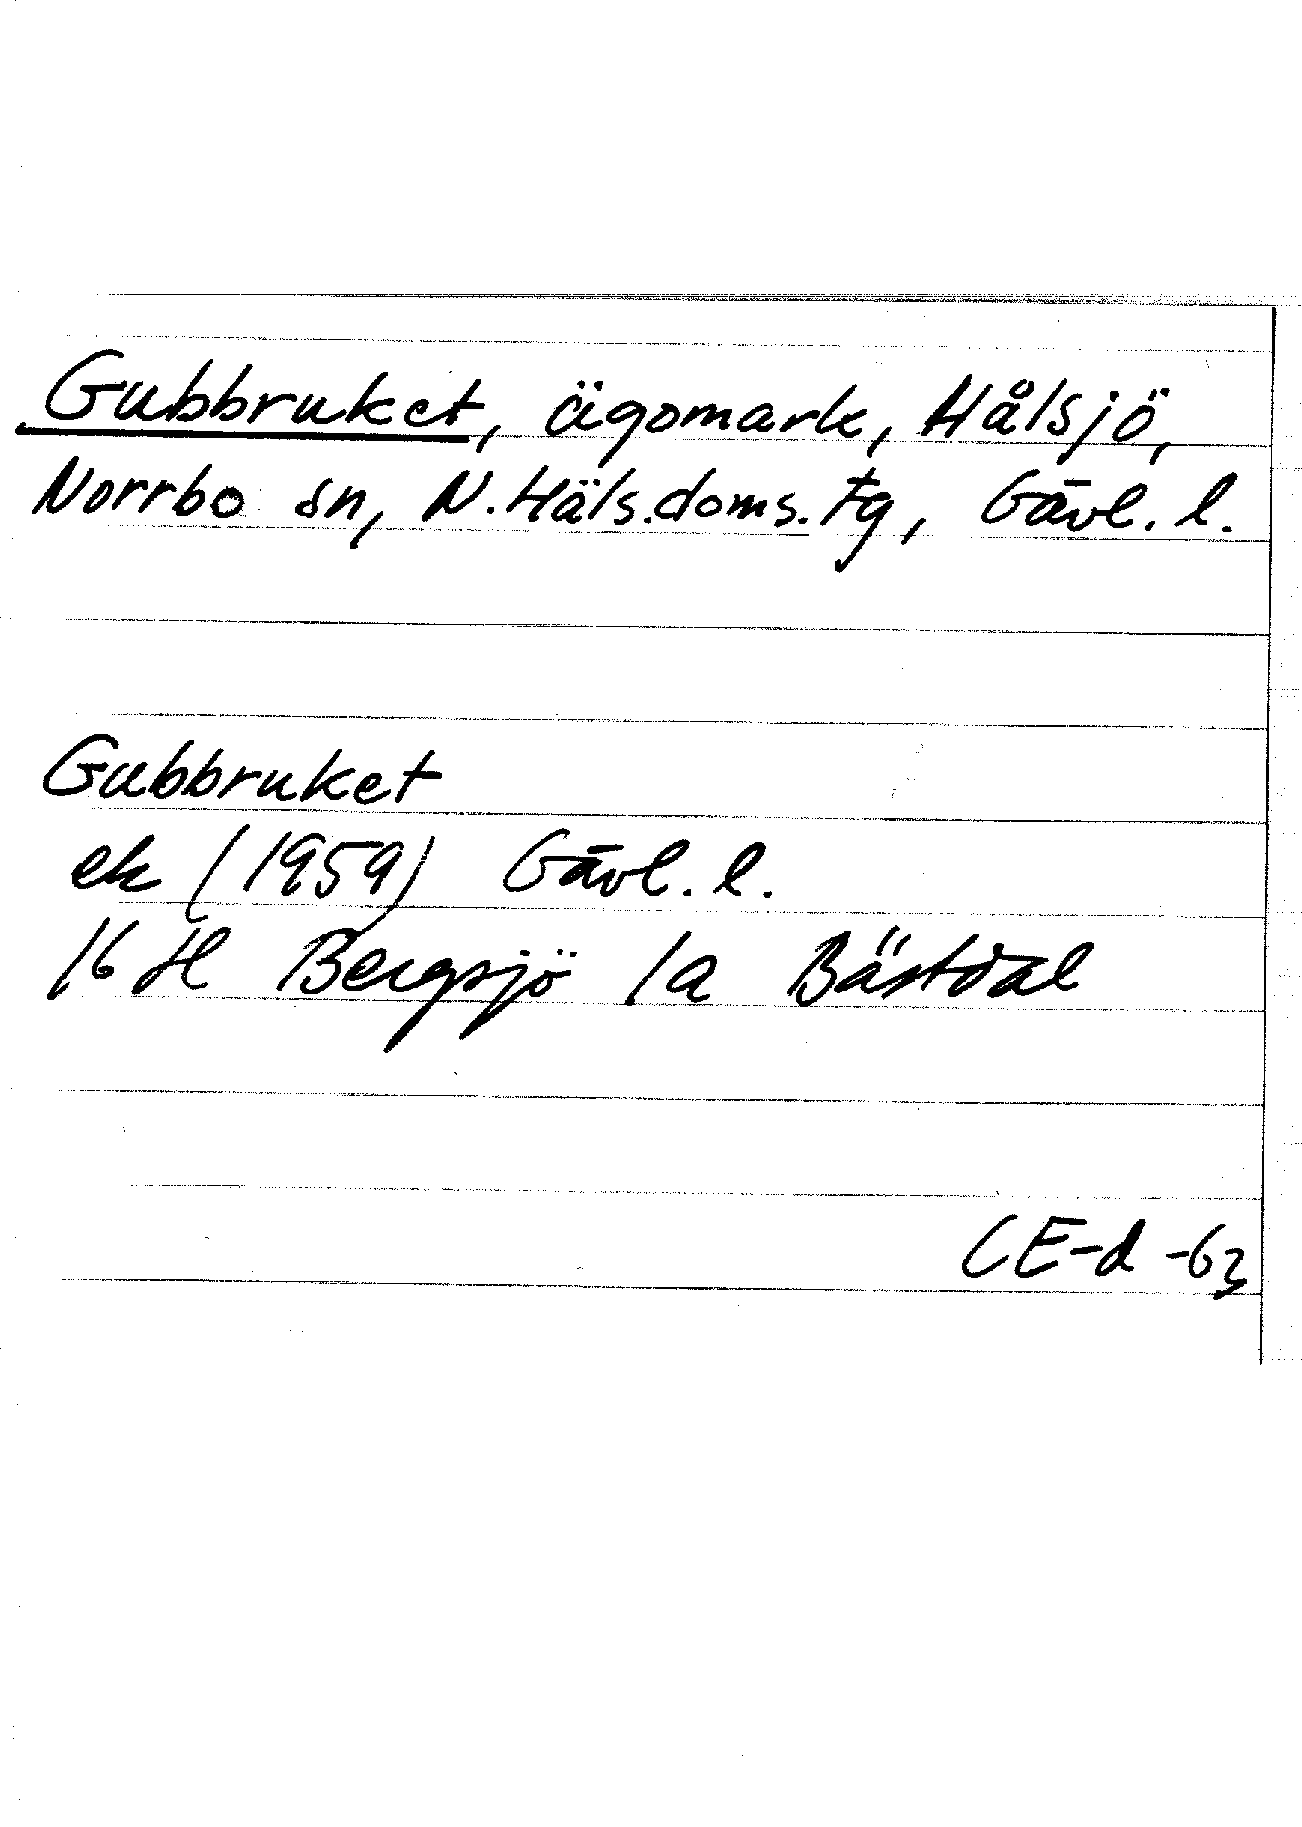 Gubbruket, ägomark, Hålsjö,
Norrbo sn, N. Häls. doms. tg, Gävl. l.
Gubbruket
ek (1959) Gävl. l.
16 H Bergsjö 1a Bästdal
CE-d -63